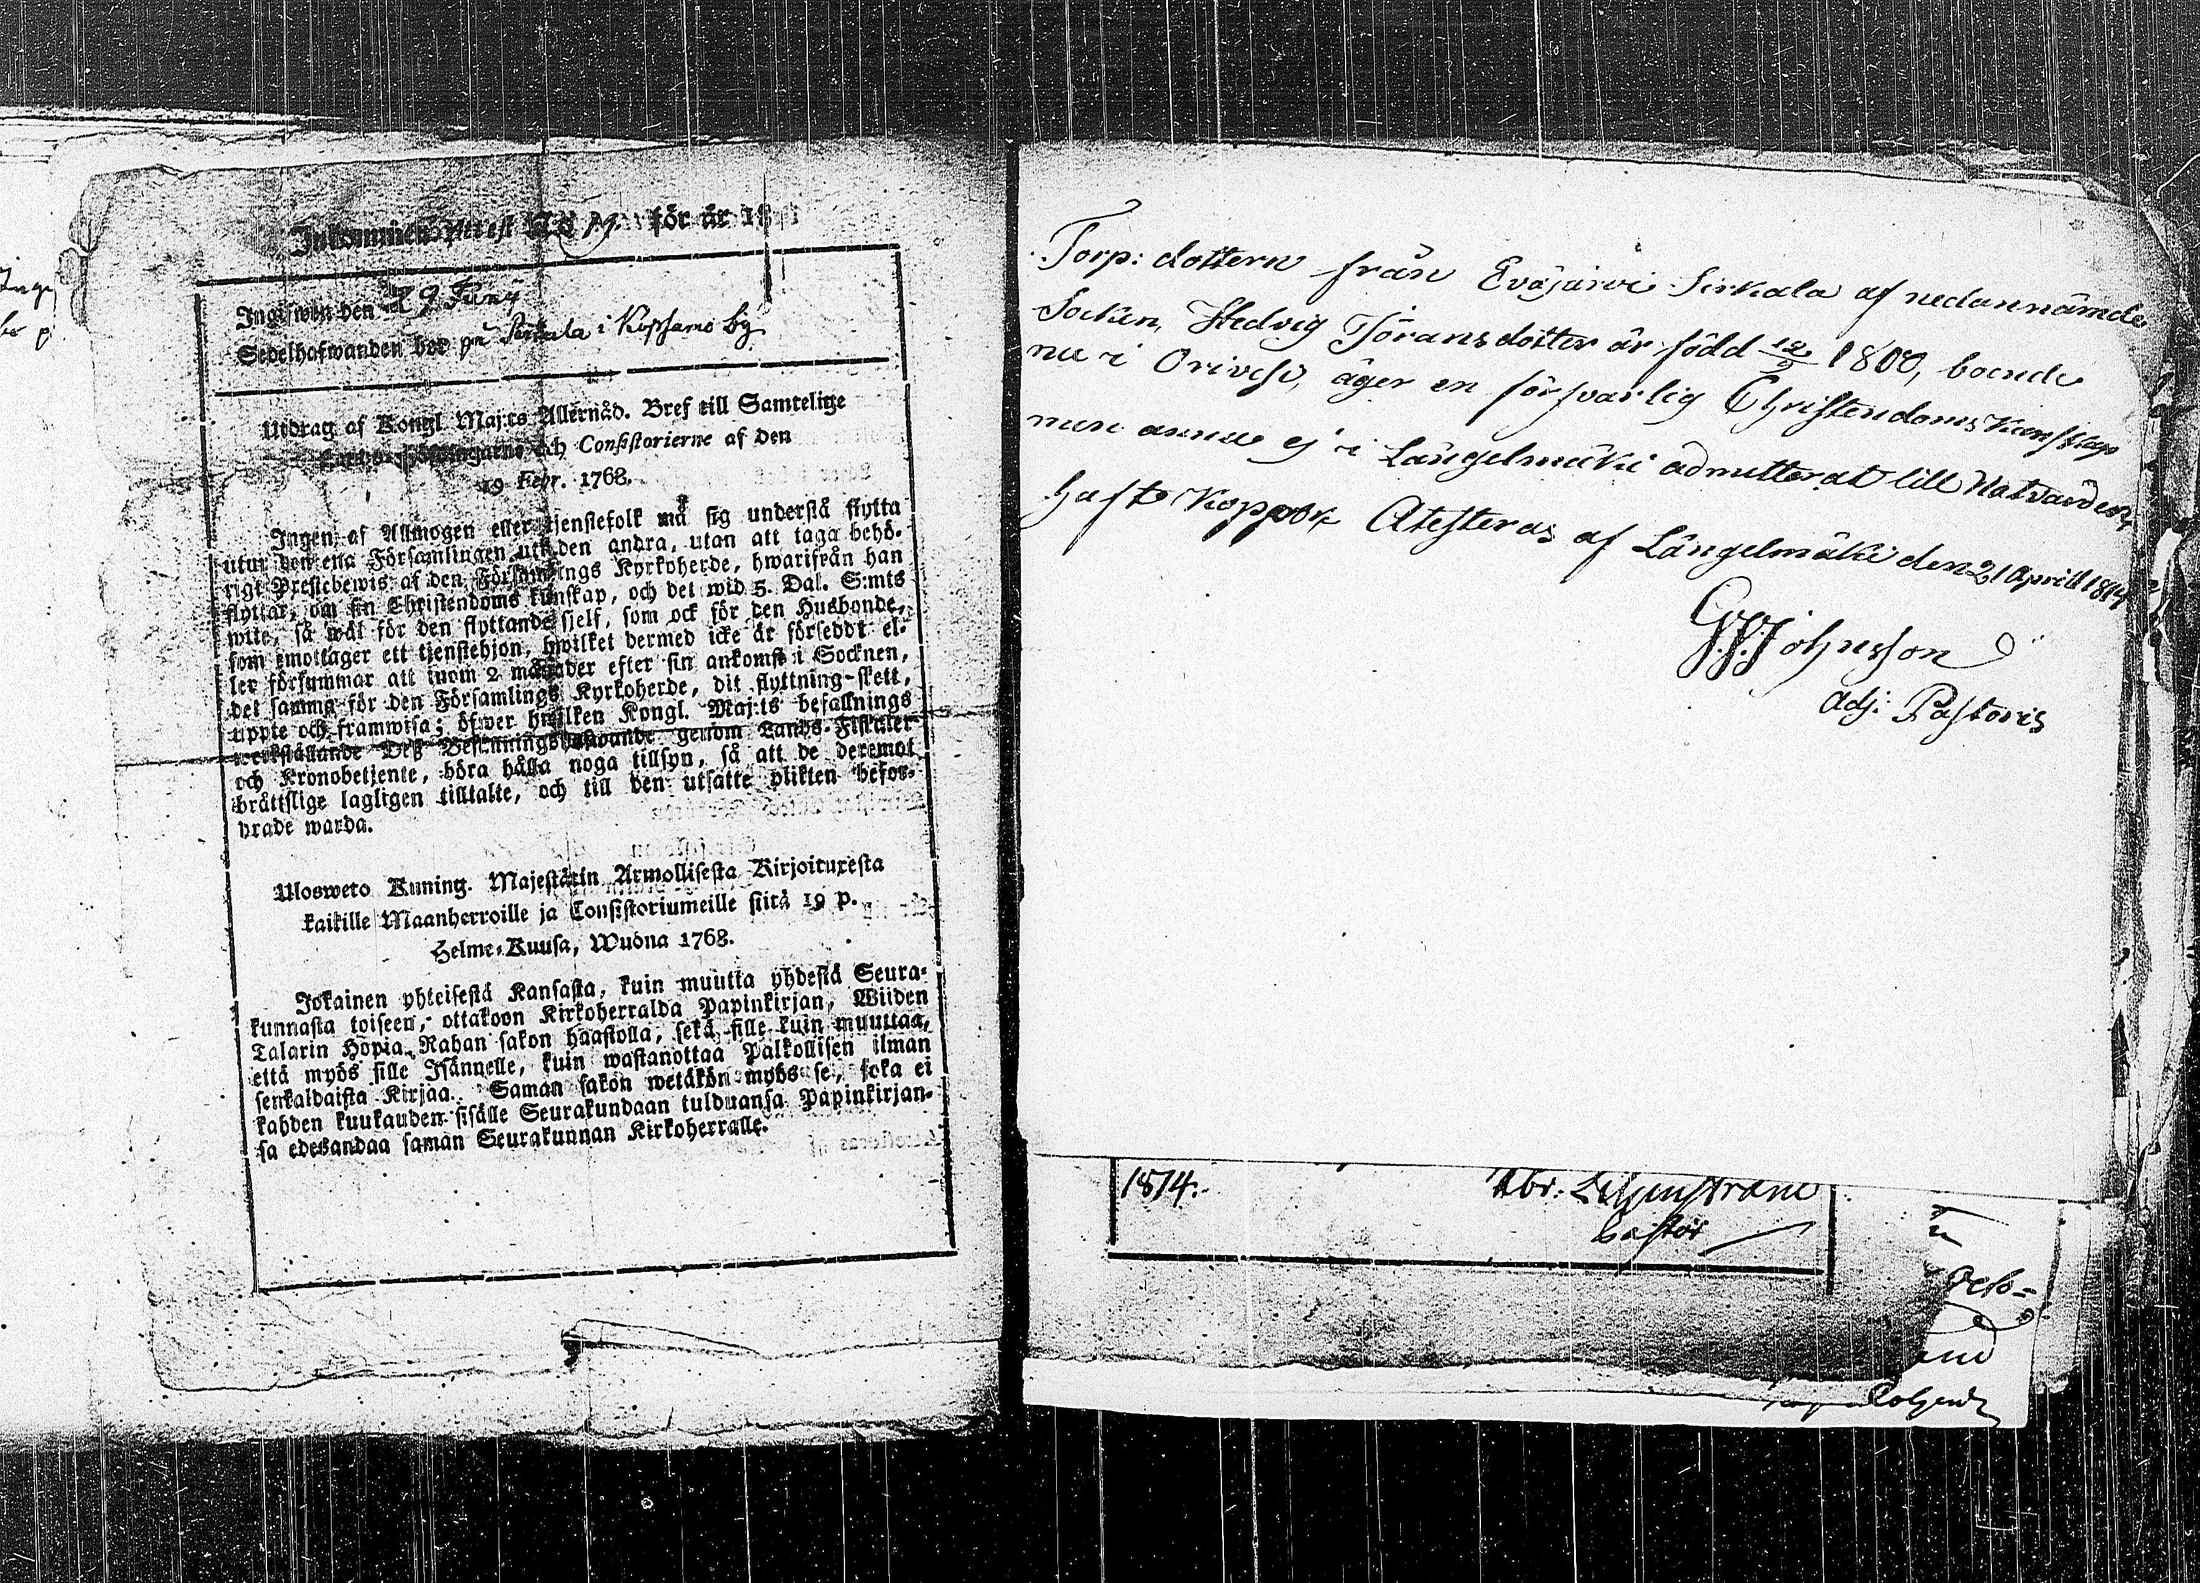 för år 18
Ingifwen den 29 Junij
Sedelhafwanden bor på i Kopsamo by
Utdrag af Kongl. Maj:ts Allernåd. Bref till Samtelige
och Consistorierne af den
19 Febr. 1768.
Ingen af Allmogen eller tjenstefolk må sig understå flytta
utur den ena Församlingen uti den andra, utan att taga behö-
rigt Prestebewis af den Församlings Kyrkoherde, hwarifrån han
flyttar, om sin Christendoms kunskap, och det wid 5. Dal. S:mts
wite, så wäl för den flyttande sjelf, som ock för den Husbonde,
som emottager ett tjenstehjon, hwilket dermed icke är förseddt el-
ler försummar att inom 2 månader efter sin ankomst i Socknen,
det samma för den Församlings Kyrkoherde, dit flyttning skett,
uppte och framwisa; öfwer hwilken Kongl. Maj:ts befallnings
werkställande Dess Befallningshafwande genom Lands-Fiskaler
och Kronobetjente, böra hålla noga tillsyn, så att de deremot
bråttslige lagligen tilltalte, och till den utsatte plikten befor-
drade warda.
Ulosweto Kuning. Majestätin Armollisesta Kirjoituxesta
kaikille Maanherroille ja Consistoriumeille siitä 19 p.
Helme-Kuusa, Wuona 1768.
Jokainen yhteisestä Kansasta, kuin muutta yhdestä Seura-
kunnasta toiseen, ottakoon Kirkoherralda Papinkirjan, Wiiden
Talarin Hopia Rahan sakon haastolla, sekä sille kuin muuttaa,
että myös sille Isännelle, kuin wastanottaa Palkollisen ilman
senkaldaista Kirjaa. Saman sakon wetäkön myös se, joka ei
kahden kuukauden sisälle Seurakundaan tulduansa Papinkirjan-
sa edesandaa saman Seurakunnan Kirkoherralle.
Torp: dottern från Eväjärvi Sirkala af nedannämde
Socken, Hedvig Jöransdotter är född 12/9 1800, boende
nu i Orivesi, äger en försvarlig Christendoms Kunskap
men ännu ej i Längelmäki admitterat till Nattvarden,
haft Koppor Atesteras af Längelmäki den 21 Aprill 1814
G. J. Johnsson
Adj: Pastoris
1814. Abr.
Pastor